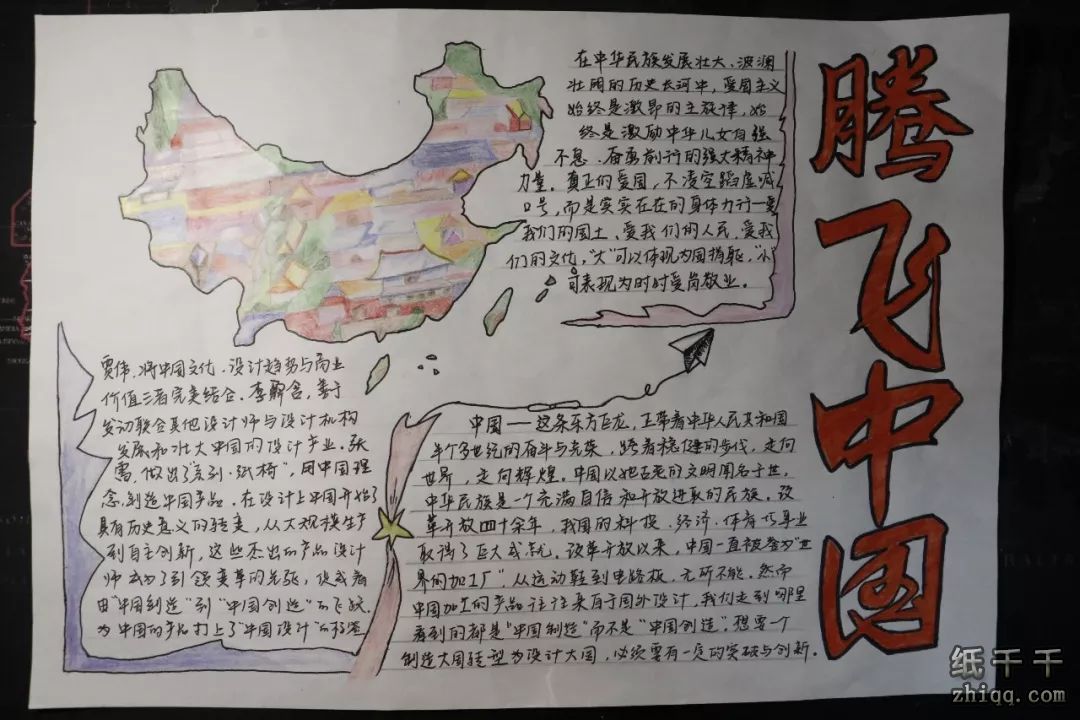 腾飞中国
在中华民族发展壮大、波澜
壮阔的历史长河中,爱国主义
始终是激昂的主旋律,始
终是激励中华儿女自强
不息、奋勇前行的强大精神
力量。真正的爱国,不凌空蹈虚喊
口号,而是实实在在的身体力行—爱
我们的国土、爱我们的人民、爱我
们的文化,“大”可以体现为国捐躯,“小”
可表现为时时爱岗敬业。
贾伟,将中国文化、设计趋势与商业
价值三者完美结合。李 含,善于
发动联合其他设计师与设计机构
发展和壮大中国的设计产业。张
雷,做出了系列·纸椅”,用中国理
念,制造中国产品。在设计上中国开始了
具有历史意义的转变,从大规模生产
到自主创新,这些杰出的产品设计
师成为了引领变革的先驱,促成着
由“中国制造”到“中国创造”的飞跃,
为中国的产品打上了“中国设计”的标签
中国——这条东方巨龙,正带着中华人民共和国
半个多世纪的奋斗与光荣,跨着稳健的步伐,走向
世界,走向辉煌。中国以她古老的文明闻名于世,
中华民族是一个充满自信和开放进取的民族。改
革开放四十余年,我国的科技、经济、体育等事业
取得了巨大成就。改革开放以来,中国一直被誉为“世
界的加工厂”。从运动鞋到电路板,无所不能。然而
中国加工的产品往往来自于国外设计,我们走到哪里
看到的都是“中国制造”而不是“中国创造”。想要一个
制造大国转型为设计大国,必须要有一定的突破与创新。
纸千千
zhiqq.com